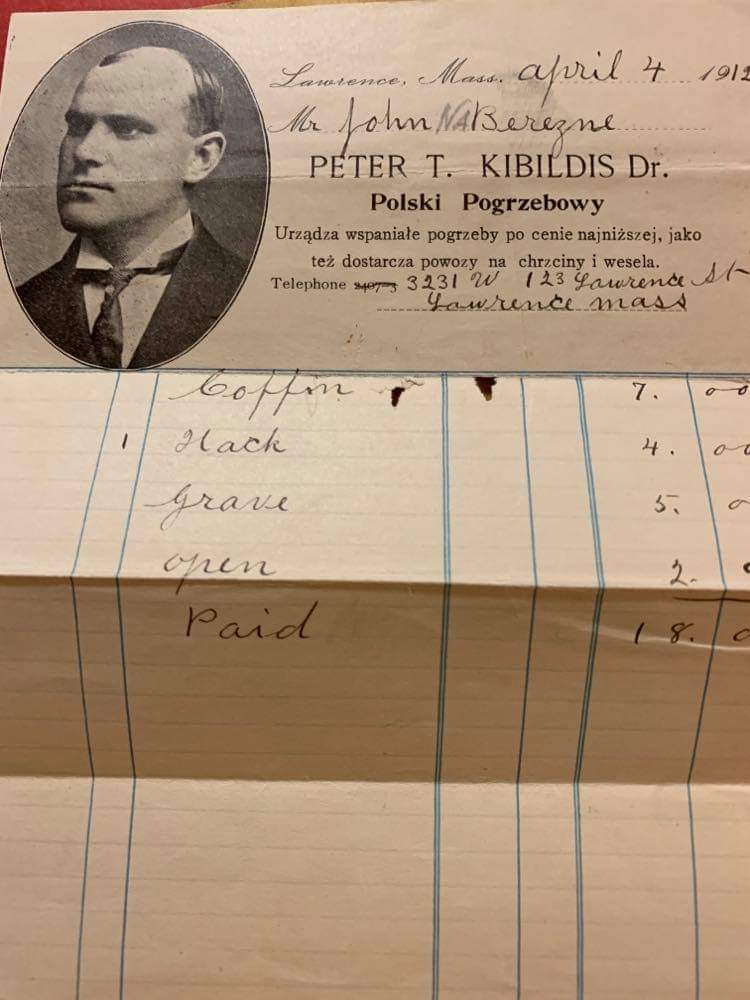 Lawrence, Mass. april 4 1912
Mr John NA Berezne
PETER T. KIBILDIS Dr.
Polski Pogrzebowy
Urządza wspaniałe pogrzeby po cenie najniższej, jako
też dostarcza powozy na chrzciny i wesela.
Telephone 2407-3 3231 W 123 Lawrence St
Lawrence mass
Coffin 7. 00
1 Hack 4. 00
Grave 5. 0
open 2.
Paid 18. 0